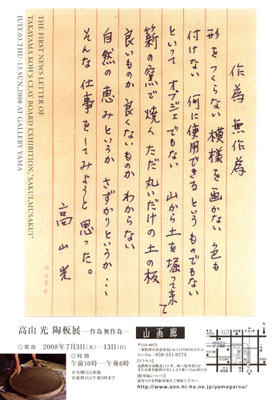 THE FIRST NEWS LETTER OF
TAKAYAMA KOH'S CLAY BOARD EXHIBITION,"SAKUI,MUSAKUI"
JULY.03.THU-13.SUN.,2008 AT GALLERY YAMA
作為 無作為
形をつくらない 模様を画かない 色も
付けない 何に使用できるというものでもない
といって オブジェでもない 山から土を掘って来て
薪の窯で焼く ただ丸いだけの土の板
良いものか 良くないものか わからない
自然の恵みというか さずかりというか・・
そんな仕事をしてみようと思った。
高山 光
高山 光 陶板展 ―作為 無作為―
◎期間 2008年7月3日(木)―13日(日)
◎時間
午前10時―午後6時
山画廊
Tel・Fax 059-331-0773
http://www.ann.hi-ho.ne.jp/yamagarou/